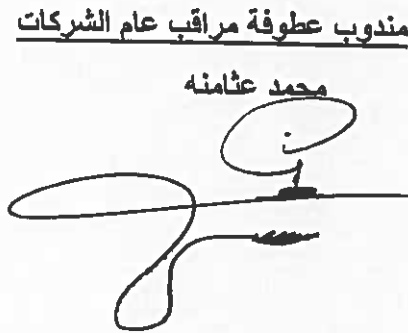 مندوب عطوفة مراقب عام الشركات
محمد عثامنه